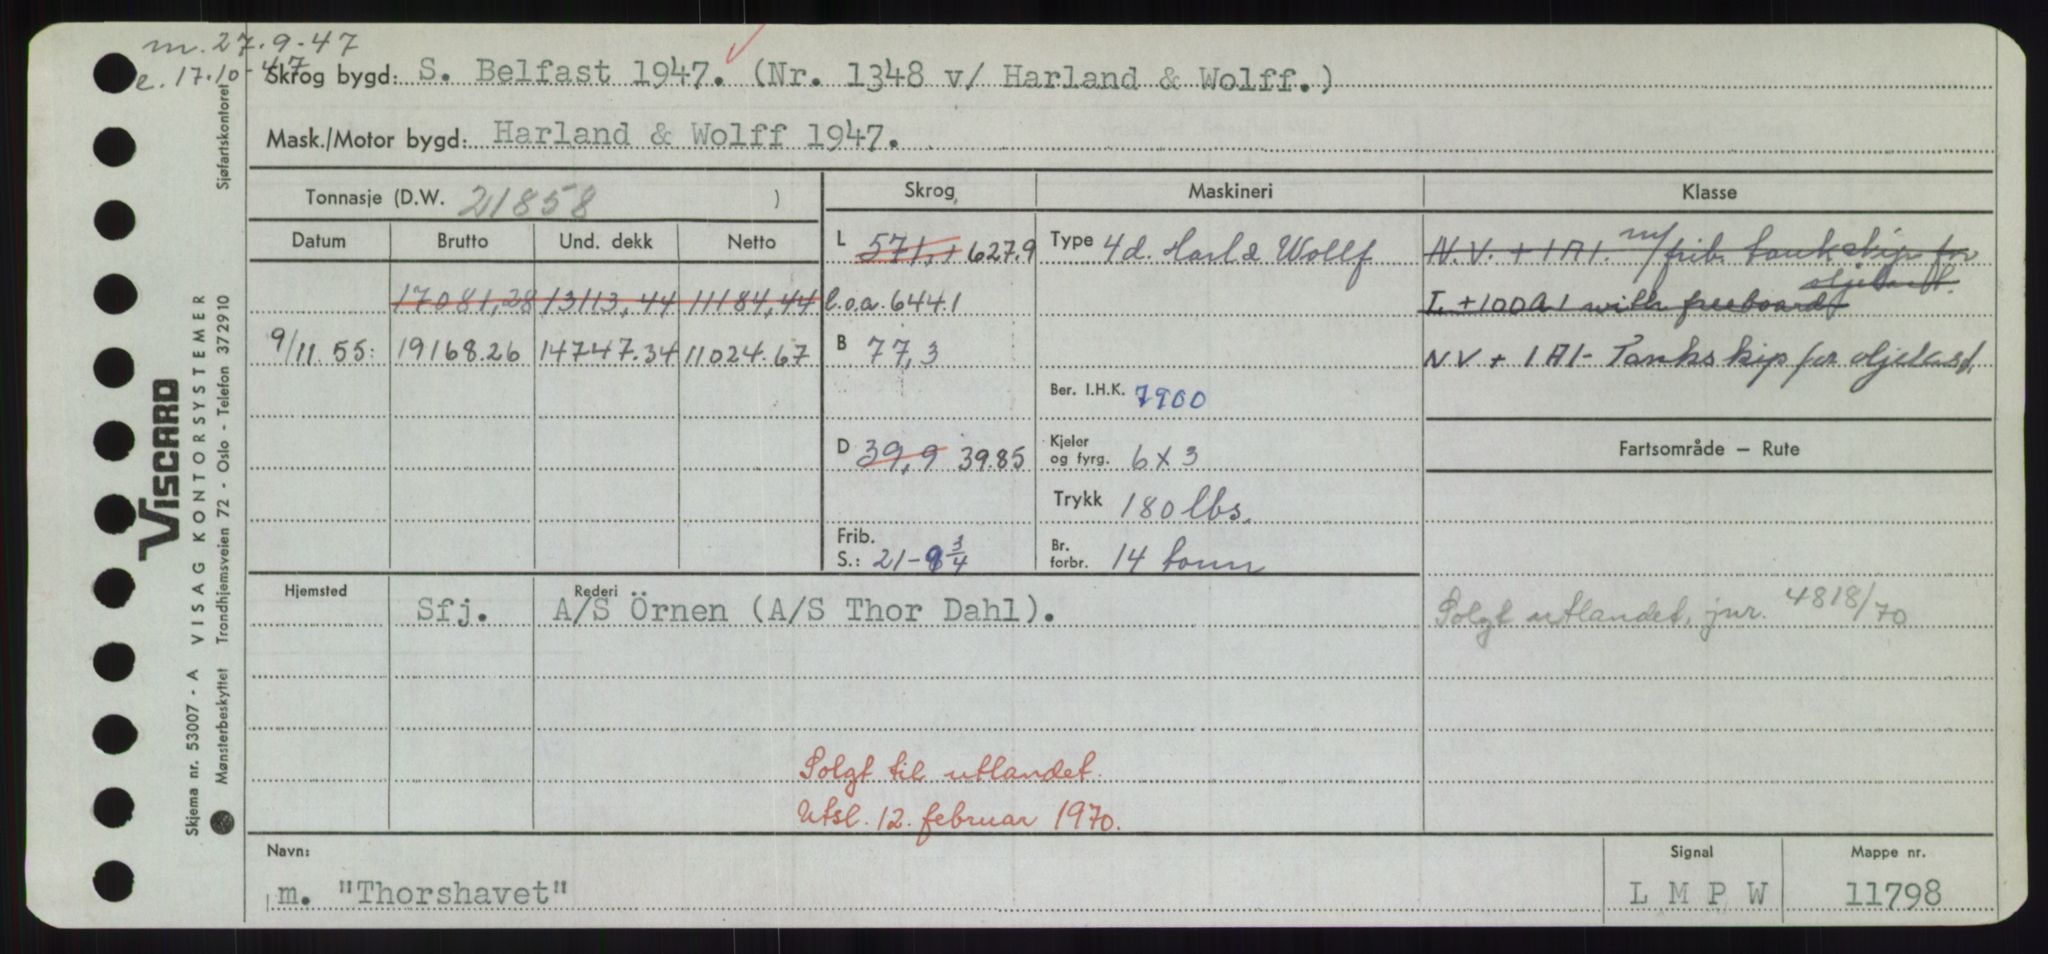 m. 27.9-47
e. 17.10-47
Skrog bygd: S. Belfast 1947. (Nr. 1348 v/ Harland & Wolff.)
Mask./Motor bygd: Harland & Wolff 1947.
Tonnasje (D.W. 21858 ) Skrog Maskineri Klasse
Datum Brutto Und. dekk Netto
L 571,1 627.9 Type 4d. Harl & Wollf N.V. + 1A1. m/frib. tankskip for oljelast.
17081,28 13113,44 11184,44 l.o.a. 644.1 L. +100A1 with freeboard
9/11 55: 19168.26 14747.34 11024.67 B 77,3 NV + 1A1- Tankskip for oljelast.
Ber. I.H.K. 7900
D 39,9 39.85 Kjeler og fyrg. 6 x 3 Fartsområde — Rute
Trykk 180 lbs.
Frib. S.: 21-9 3/4 Br. forbr. 14 tonn
Hjemsted Rederi
Sfj. A/S Örnen (A/S Thor Dahl). Solgt utlandet, jnr. 4818/70
Solgt til utlandet.
Utsl. 12. februar 1970.
Navn: Signal Mappe nr.
m. "Thorshavet" L M P W 11798
VISCARD
Skjema nr. 53007 - A VISAG KONTORSYSTEMER
Mønsterbeskyttet Trondhjemsveien 72 - Oslo - Telefon 372910
Sjøfartskontoret